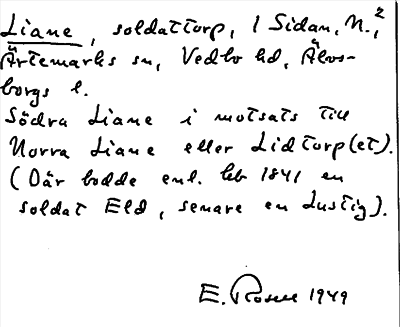 Liane, soldattorp, 1 Sidan, N., 2
Ärtemarks sn, Vedbo hd, Älvs-
borgs l.
Södra Liane i motsats till
Norra Liane eller Lidtorp(et).
(Där bodde enl. hfb 1841 en
soldat Eld, senare en Lustig).
E. Rosell 1949